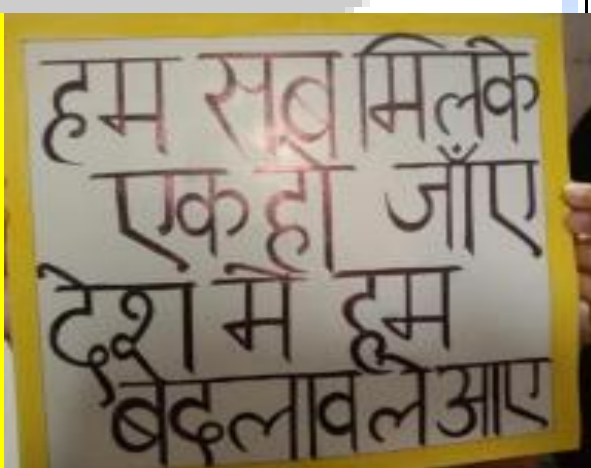 हम सब मिलके
एक हो जाँए
देश में हम
बदलाव ले आए